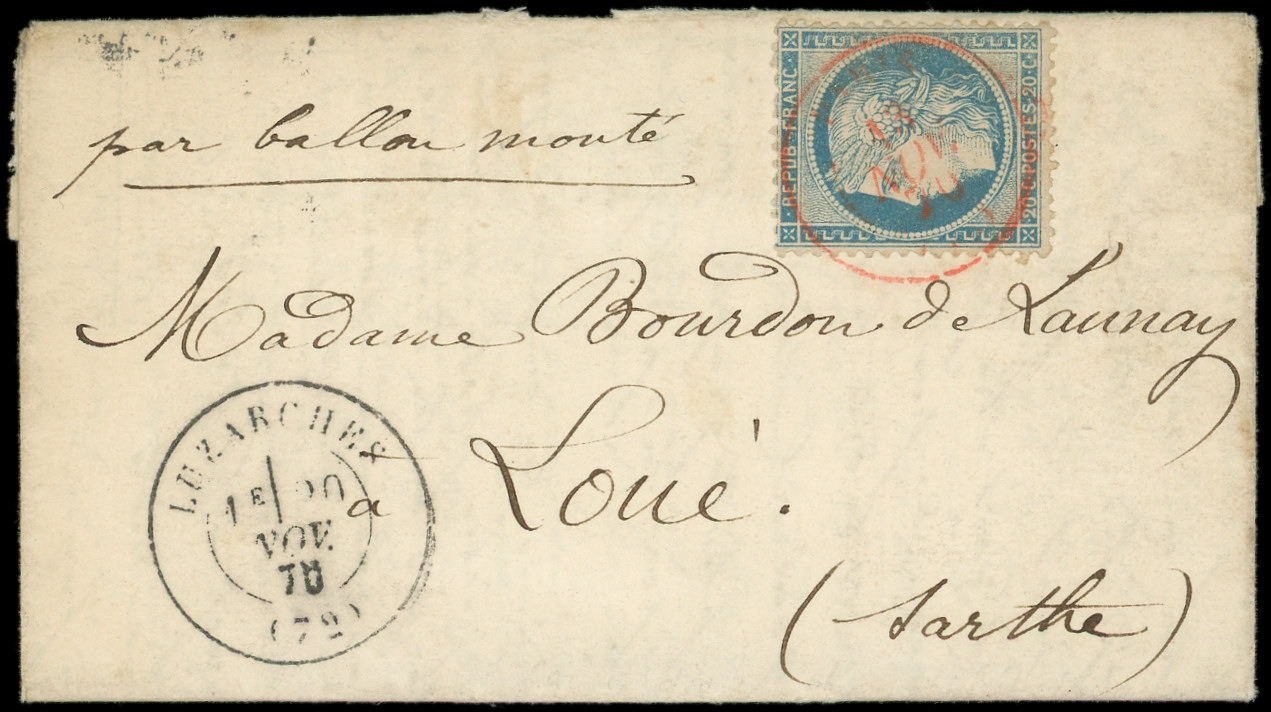 par ballon monté
REPUB · FRANC ·
· 20 · C · POSTES · 20 · C ·
NOV.
Madame Bourdon de Launay
à Loué.
(Sarthe)
LUZARCHES
1E 20
NOV.
70
(72)